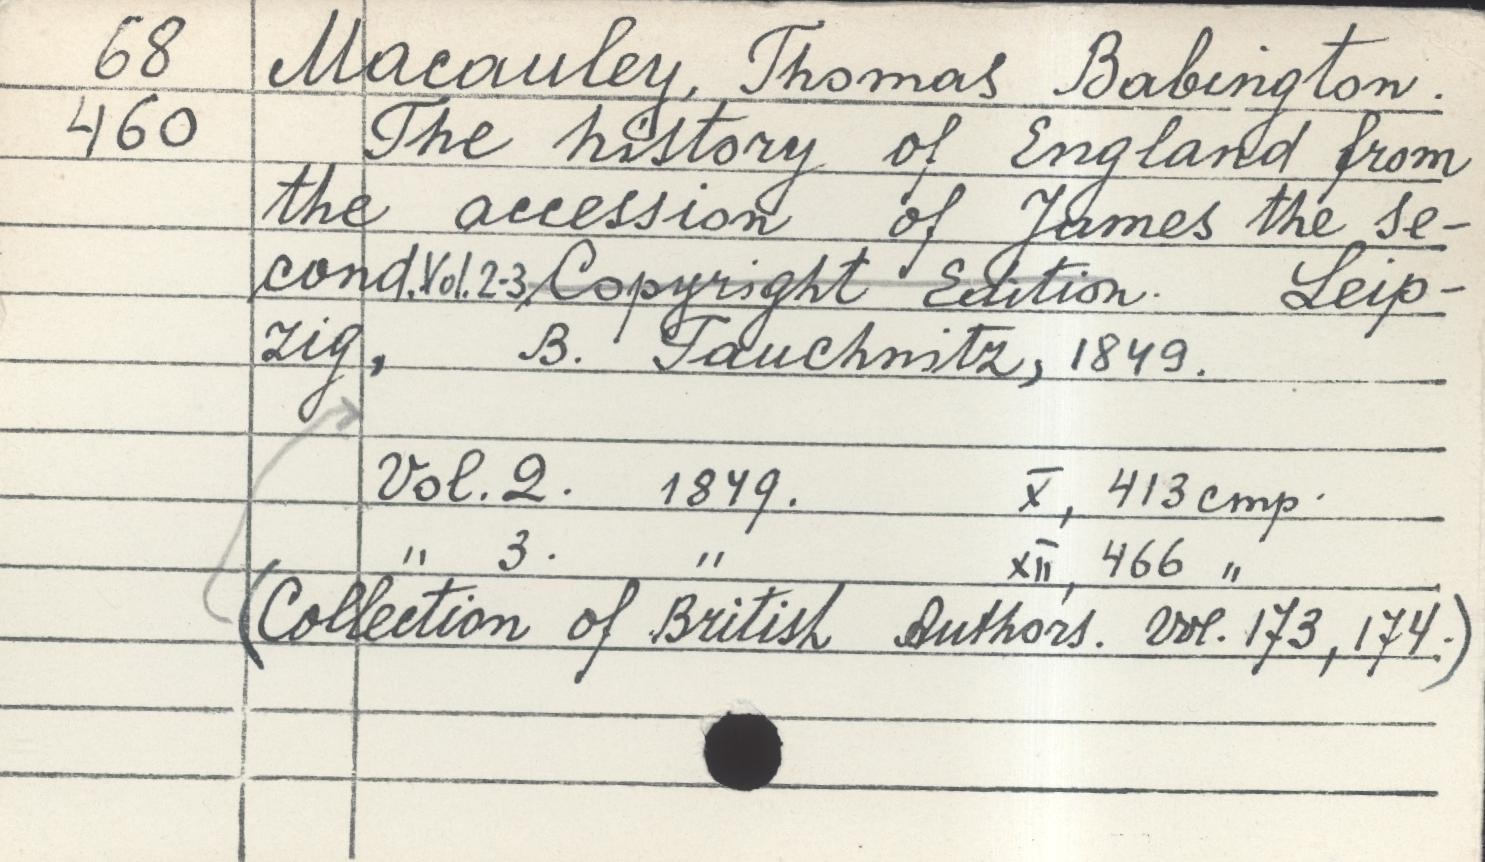 68 Macauley, Thomas Babington.
460 The history of England from
the accession of James the se-
cond. Vol. 2-3, Copyright Edition. Leip-
zig, B. Tauchnitz, 1849.
Vol. 2. 1849. X, 413 cmp.
" 3. " XII, 466 "
(Collection of British Authors. Vol. 173, 174.)